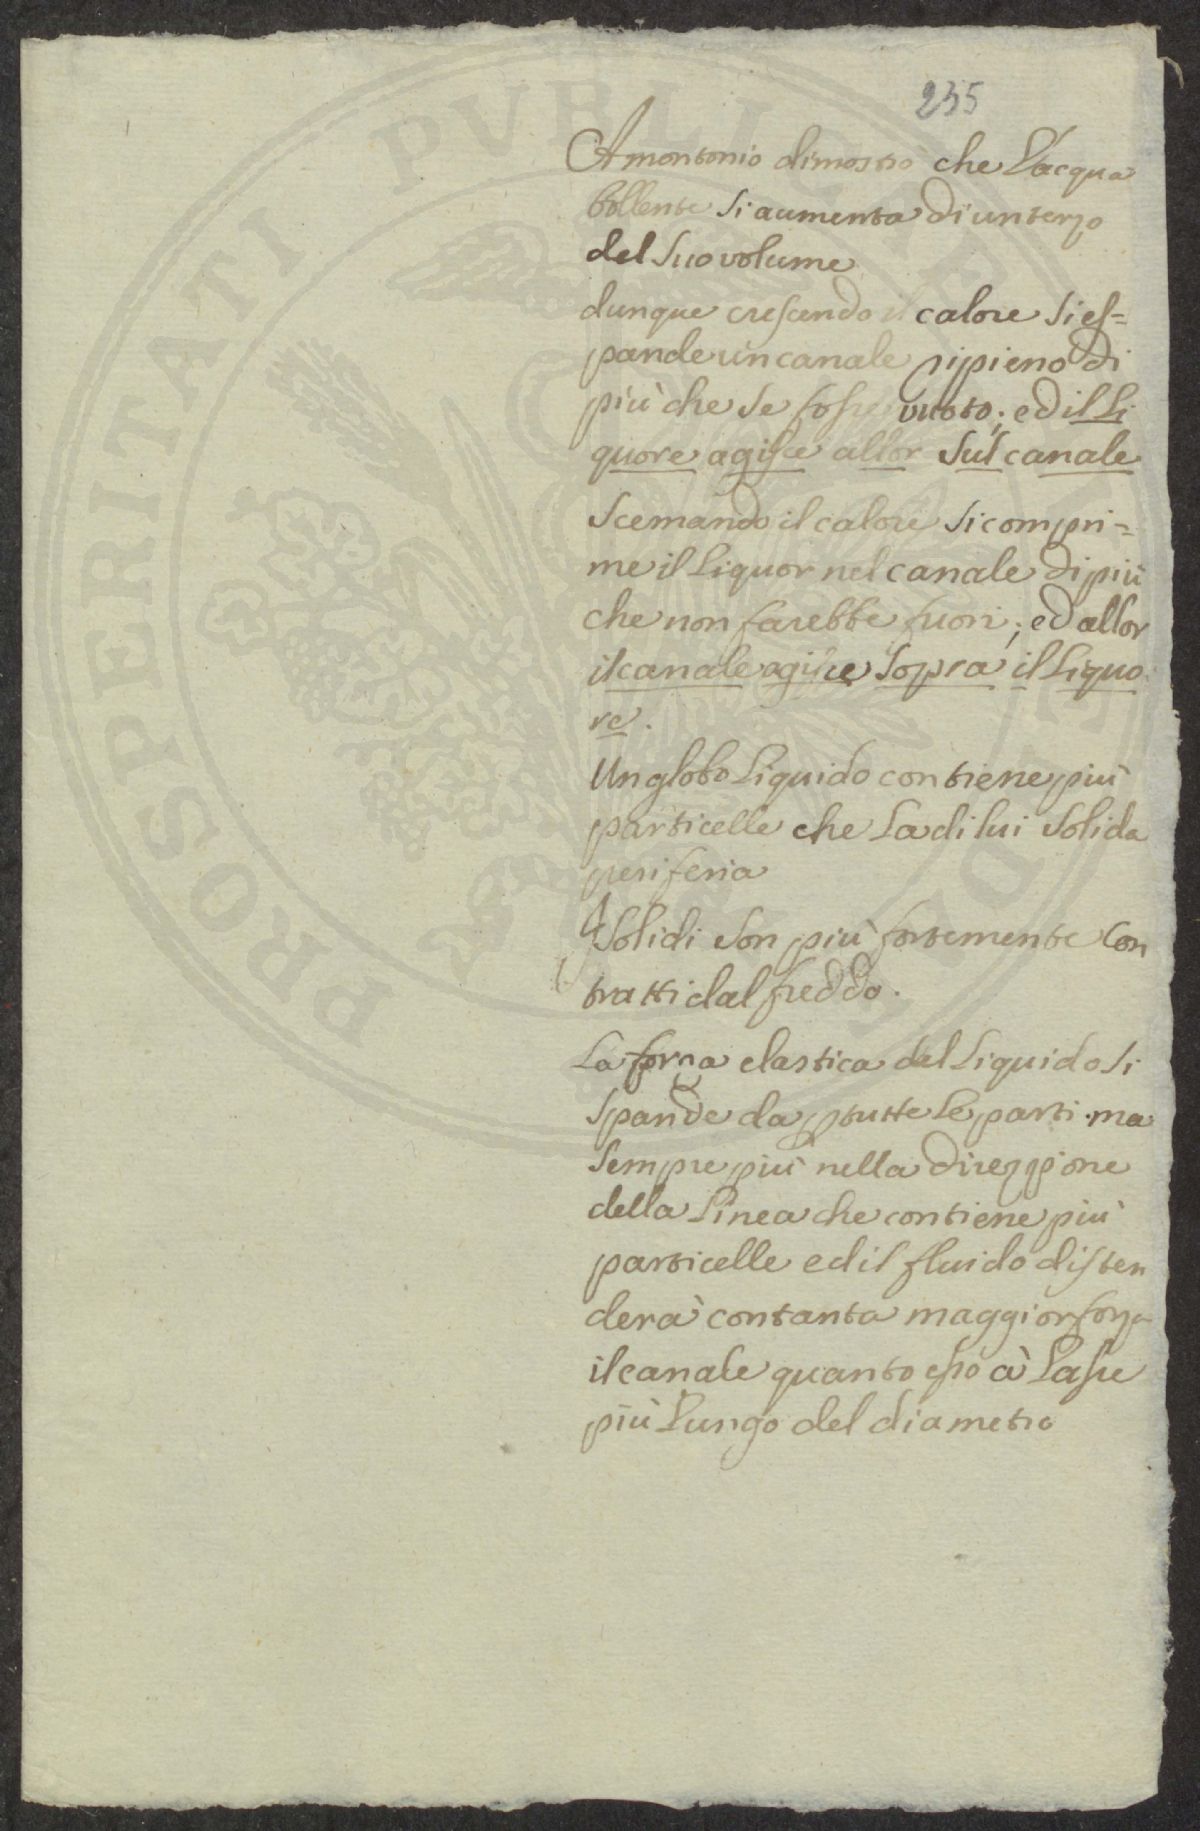 235
Amontonio dimostrò che l'acqua
bollente si aumenta di un terzo
del suo volume
dunque crescendo il calore si es=
pande un canale ripieno di
più che se fosse vuoto; ed il li
quore agisce allor sul canale
Scemando il calore si compri=
me il liquor nel canale di più
che non farebbe fuori; ed allor
il canale agisce sopra il liquo
re.
Un globo liquido contiene più
particelle che la di lui solida
periferia
I solidi son più fortemente con
tratti dal freddo.
La forza elastica del liquido si
spande da p tutte le parti ma
sempre più nella direzzione
della linea che contiene più
particelle ed il fluido disten
derà con tanta maggior forza
il canale quanto esso à l'asse
più lungo del diametro
PROSPERITATI PVBLICAE